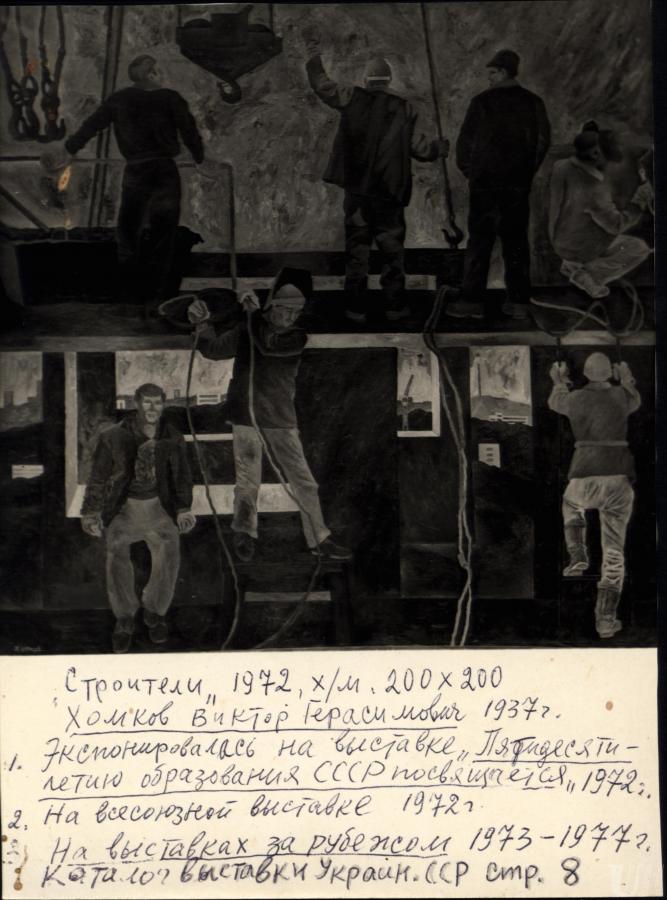 "Строители„ 1972, х/м. 200х200
Хомков Виктор Герасимович 1937г.
1. Экспонировалась на выставке „Пятидесяти-
летию образования СССР посвящается„ 1972г.
2. На всесоюзной выставке 1972г.
На выставках за рубежом 1973-1977г.
каталог выставки Украин. ССР стр. 8